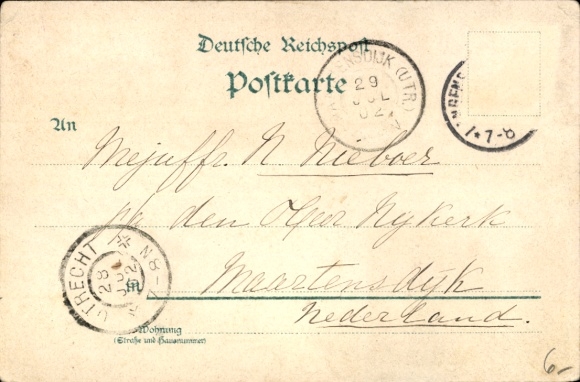 Deutsche Reichspost
Postkarte
MAARTENSDIJK (UTR.)
29
JUL
02
7-8
An
Mejuffr. N Nieboer
p/a den Heer Nykerk
UTRECHT
28
JUL
02
8-N
in
Maartensdyk
Nederland.
Wohnung
(Straße und Hausnummer)
6-